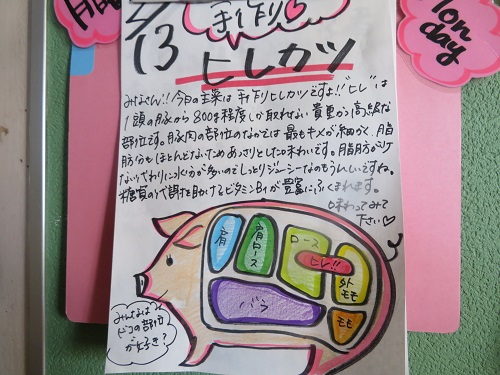 13
手作り
ヒレカツ
Mon
day
みなさん!!今日の主菜は手作りヒレカツですよ!!"ヒレ"は
1頭の豚から800g程度しか取れない貴重かつ高級な
部位です。豚肉の部位のなかでは最もキメが細かく、脂
肪分もほとんどないためあっさりとした味わいです。脂肪が少
ない代わりに水分が多いのでしっとりジューシーなのもうれしいですね。
糖質の代謝を助けるビタミンB1が豊富にふくまれます。
味わってみて
下さい♡
肩
肩ロース
ロース
ヒレ!!
外モモ
バラ
モモ
みんなは
ドコの部位
が好き?